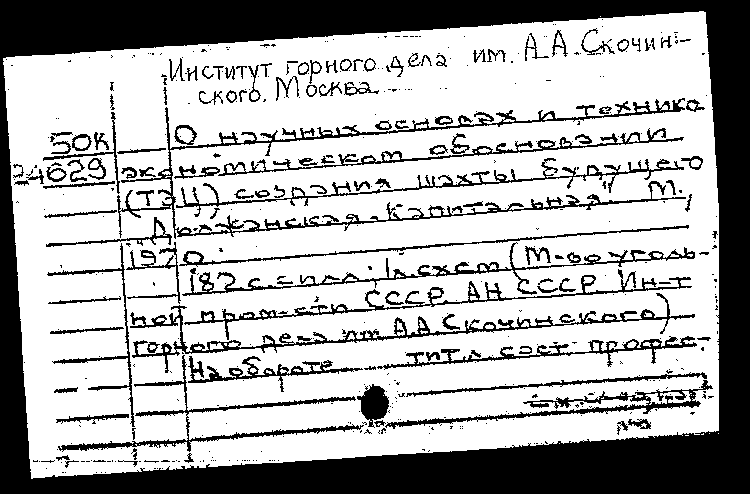 Институт горного дела им. А.А.Скочин-
ского. Москва.
50К О научных основах и технико
24629 экономическом обосновании
(ТЭЦ) создания шахты будущего
"Должанская-Капитальная". М.,
1970.
182 с. с илл; 1 л. схем (М-во уголь-
ной пром-сти СССР АН СССР Ин-т
горного дела им А.А.Скочинского)
На обороте тит. л сост. профес-